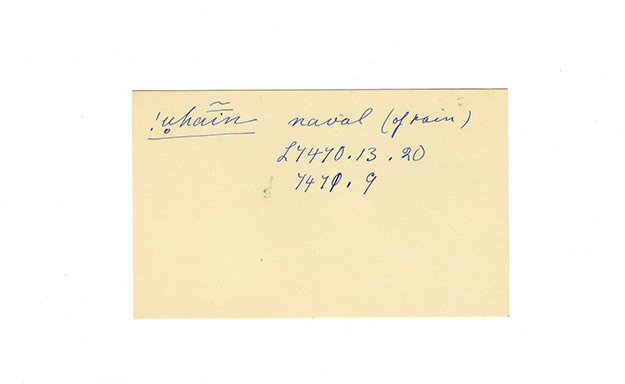 !u̥hāĩn naval (of rain)
L7470.13.20
7470.9